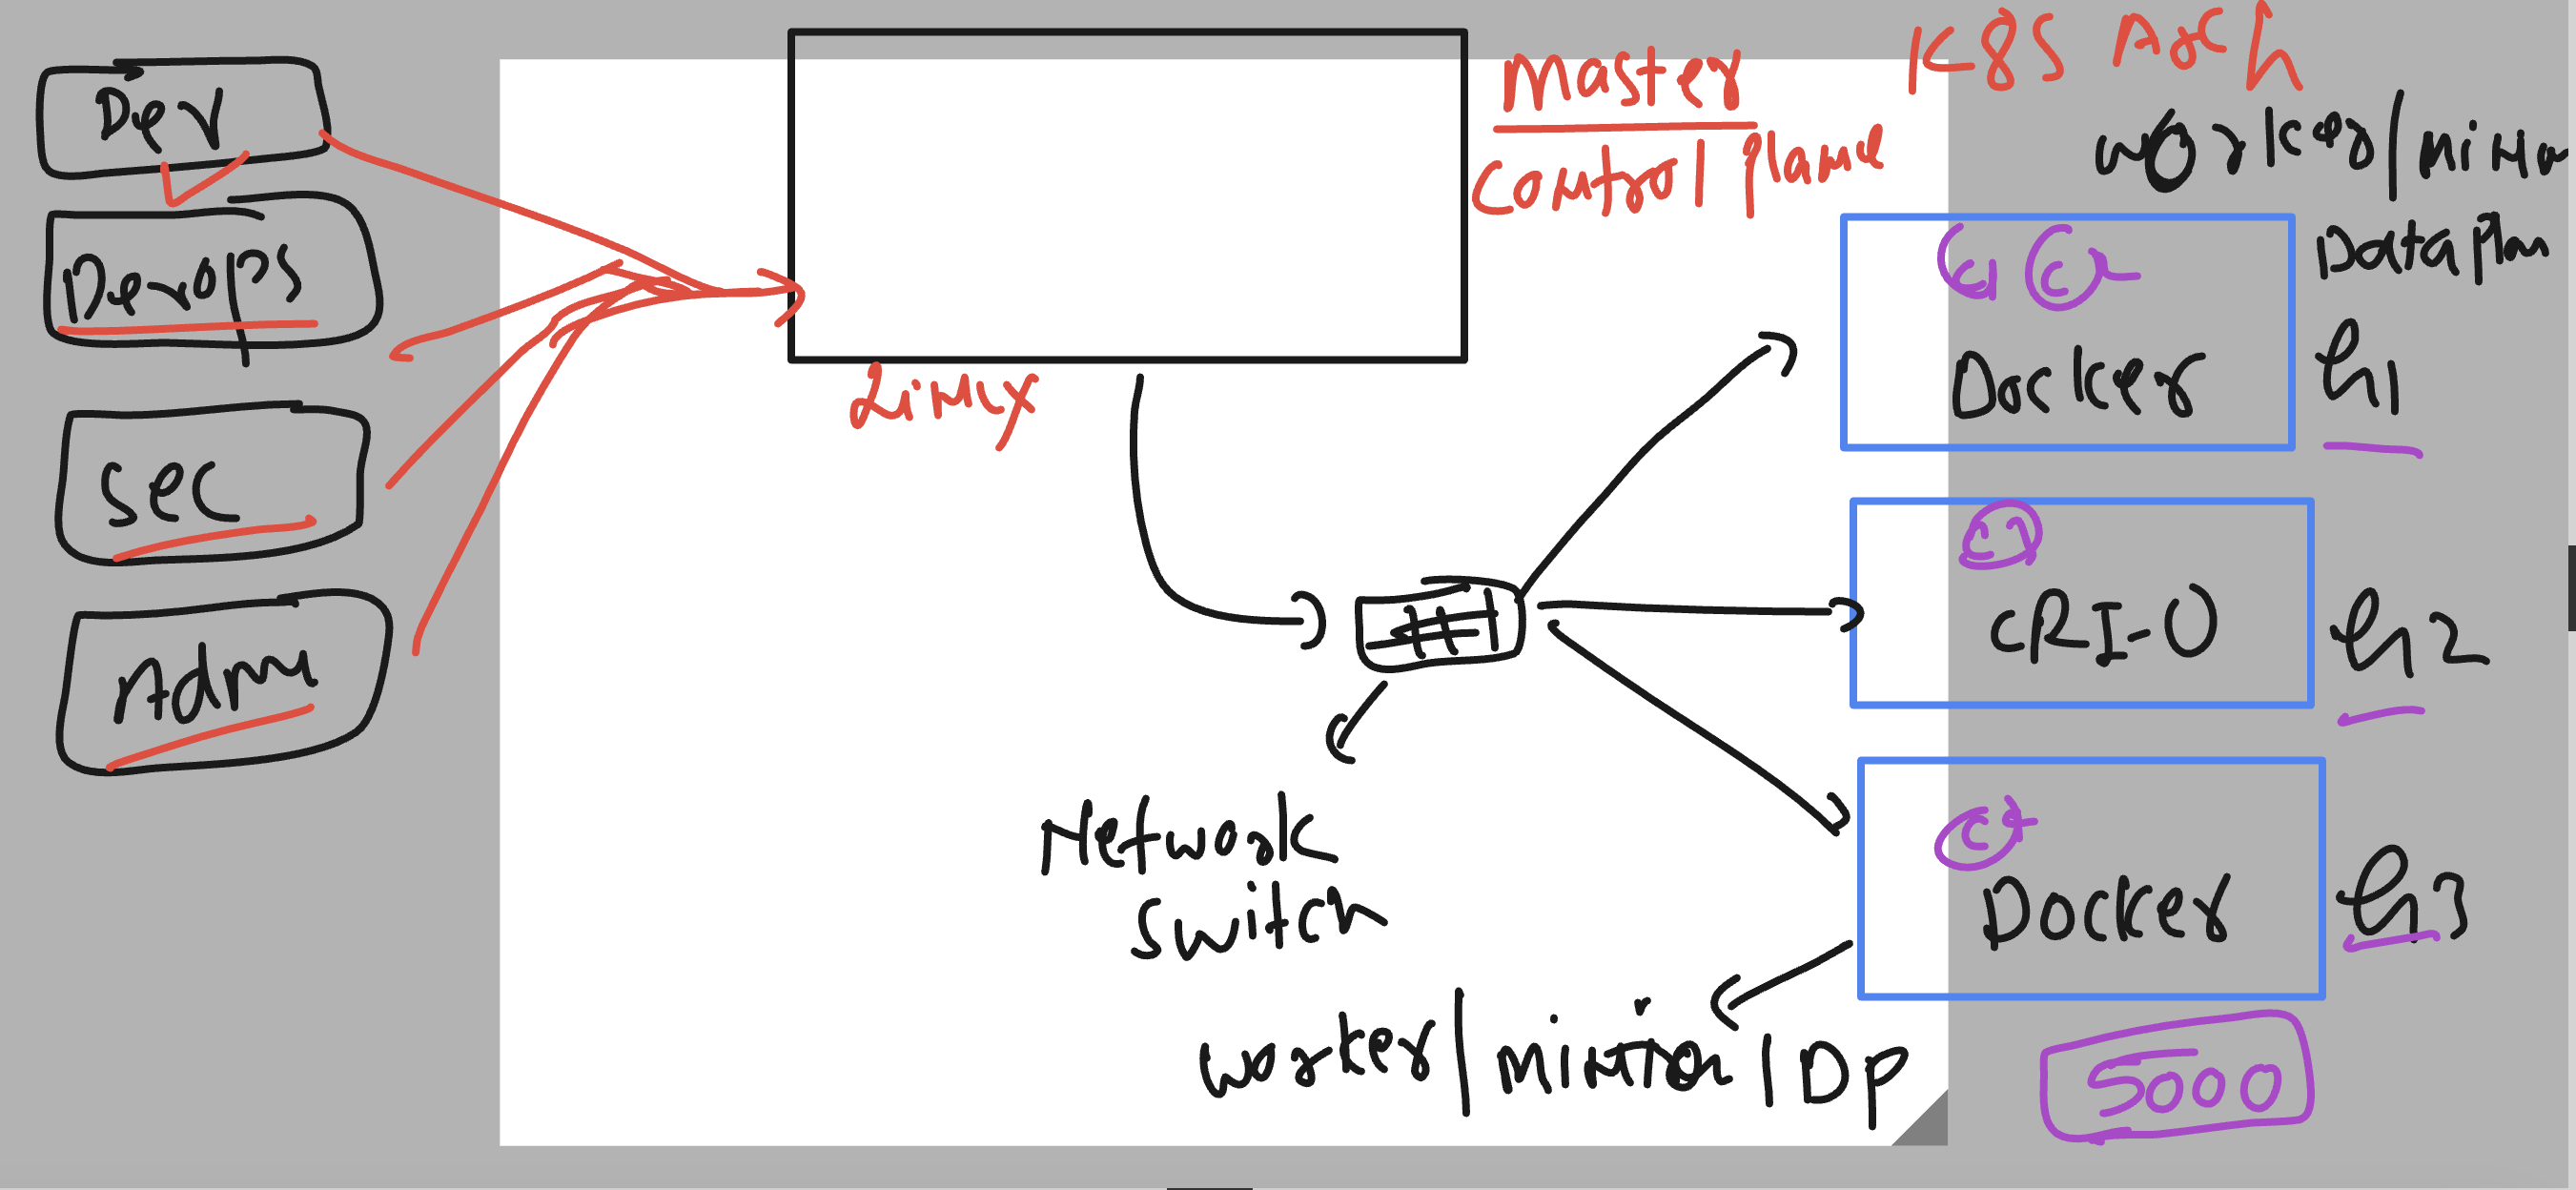 K8S Arch
Dev
Devops
Sec
Adm
Master
Control Plane
Linux
Worker/minion
Data Plan
C1 C2
Docker
h1
CRI-O
h2
Docker
h3
Network
Switch
Worker/minion/DP
5000